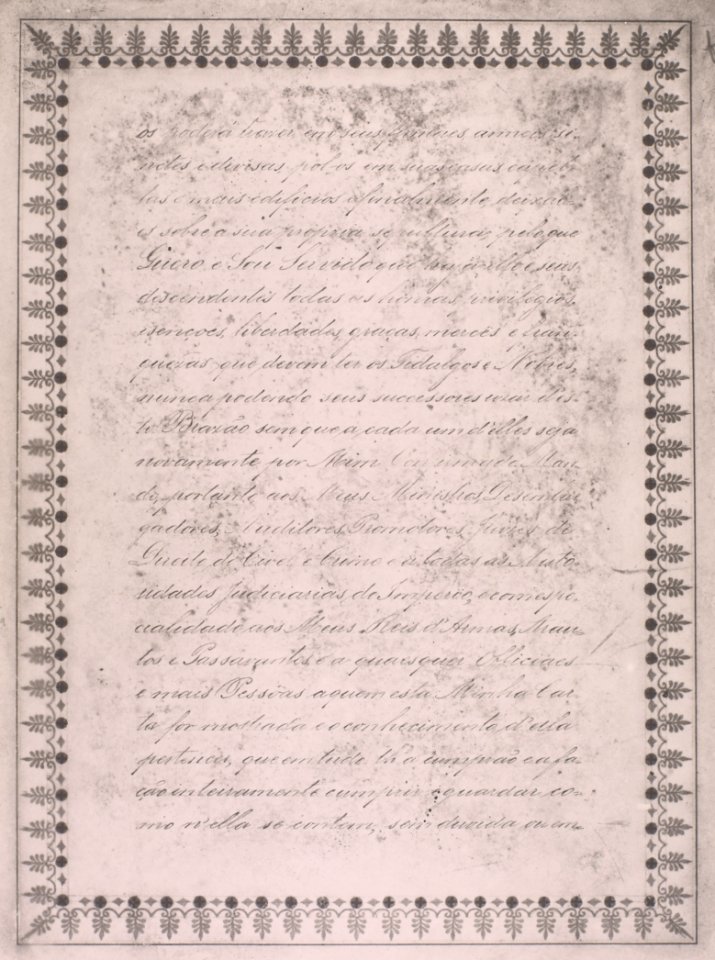 os poderá trazer em seus firmaes, anneis, si-
netes e divisas, pol-os em suas casas, capel-
las e mais edificios, e finalmente, deixal-
os sobre a sua propria sepultura; pelo que
Quero e Sou Servido que haja elle e seus
descendentes todas as honras, privilegios,
isenções, liberdades, graças, mercês e fran-
quezas que devem ter os Fidalgos e Nobres,
nunca podendo seus successores uzar d'es-
te Brazão sem que a cada um d'elles seja
novamente por Mim Confirmado. Man-
do, portanto aos Meus Ministros, Desembar-
gadores, Auditores, Promotores, Juizes de
Direito do Civel e Crime e a todas as Auto-
ridades Judiciarias do Imperio, e com espe-
cialidade aos Meus Reis d'Armas, Arau-
tos e Passavantes e a quaesquer Officiaes
e mais Pessôas a quem esta Minha Car-
ta for mostrada e o conhecimento d'ella
pertencer, que em tudo lh'a cumprão e a fa-
ção inteiramente cumprir e guardar co-
mo n'ella se contem, sem duvida ou em-